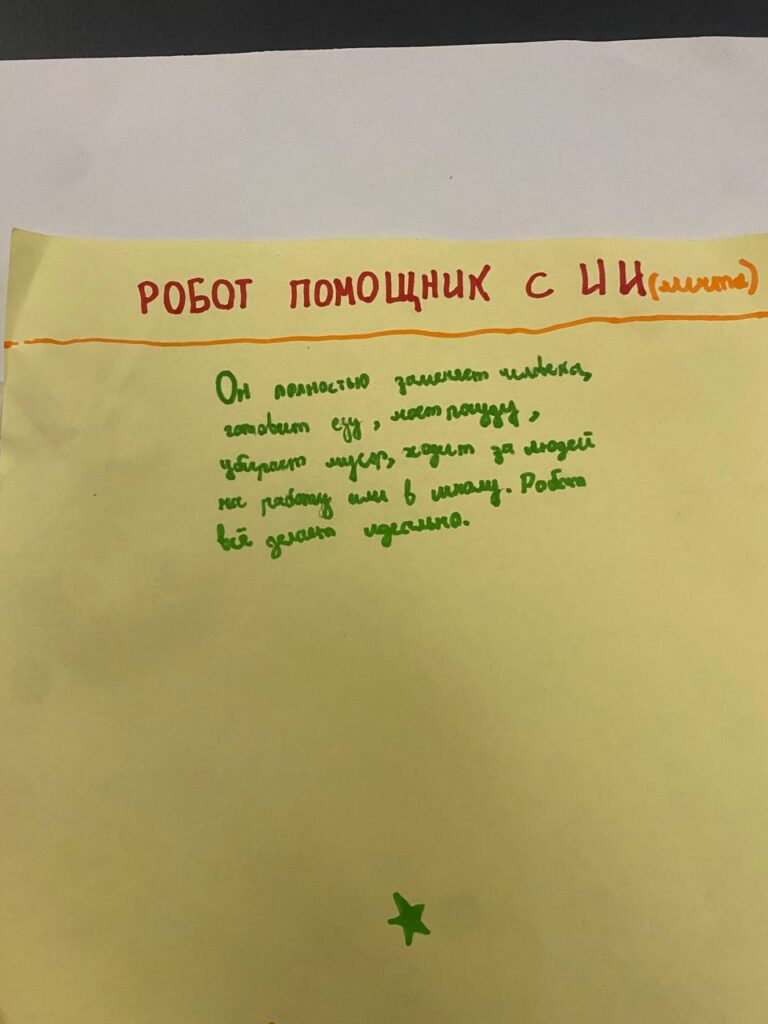 РОБОТ ПОМОЩНИК С ИИ (мечта)
Он полностью заменяет человека,
готовит еду, моет посуду,
убирает мусор, ходит за людей
на работу или в школу. Робот
всё делает идеально.